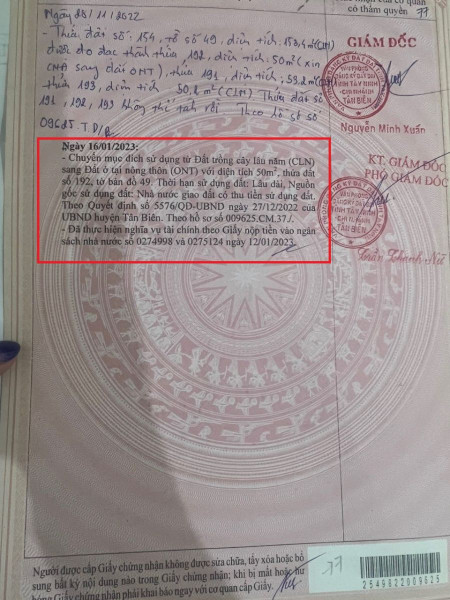 có thẩm quyền
Ngày 28/11/2022
- Thửa đất số: 154, tờ số 49, diện tích: 153,4m²(CLN)
được đo đạc thành thửa 192, diện tích: 50m² (xin
sang đất ONT), thửa 191, diện tích: 53,2m²
thửa 193, diện tích 50,2 (CLN) Thửa đất số
191, 192, 193 không thể tách rời. Theo hồ sơ số
GIÁM ĐỐC
VĂN PHÒNG
ĐĂNG KÝ ĐẤT ĐAI
TỈNH TÂY NINH
CHI NHÁNH
TÂN BIÊN
Nguyễn Minh Xuân
Ngày 16/01/2023:
- Chuyển mục đích sử dụng từ Đất trồng cây lâu năm (CLN)
sang Đất ở tại nông thôn (ONT) với diện tích 50m², thửa đất
số 192, tờ bản đồ 49. Thời hạn sử dụng đất: Lâu dài, Nguồn
gốc sử dụng đất: Nhà nước giao đất có thu tiền sử dụng đất.
Theo Quyết định số 5576/QĐ-UBND ngày 27/12/2022 của
UBND huyện Tân Biên. Theo hồ sơ số 009625.CM.37./.
- Đã thực hiện nghĩa vụ tài chính theo Giấy nộp tiền vào ngân
sách nhà nước số 0274998 và 0275124 ngày 12/01/2023.
KT. GIÁM ĐỐC
PHÓ GIÁM ĐỐC
VĂN PHÒNG
ĐĂNG KÝ ĐẤT ĐAI
TỈNH TÂY NINH
CHI NHÁNH
TÂN BIÊN
Trần Thanh Nữ
Người được cấp Giấy chứng nhận không được sửa chữa, tẩy xóa hoặc bổ
sung bất kỳ nội dung nào trong Giấy chứng nhận; khi bị mất hoặc hư
hỏng Giấy chứng nhận phải khai báo ngay với cơ quan cấp Giấy.